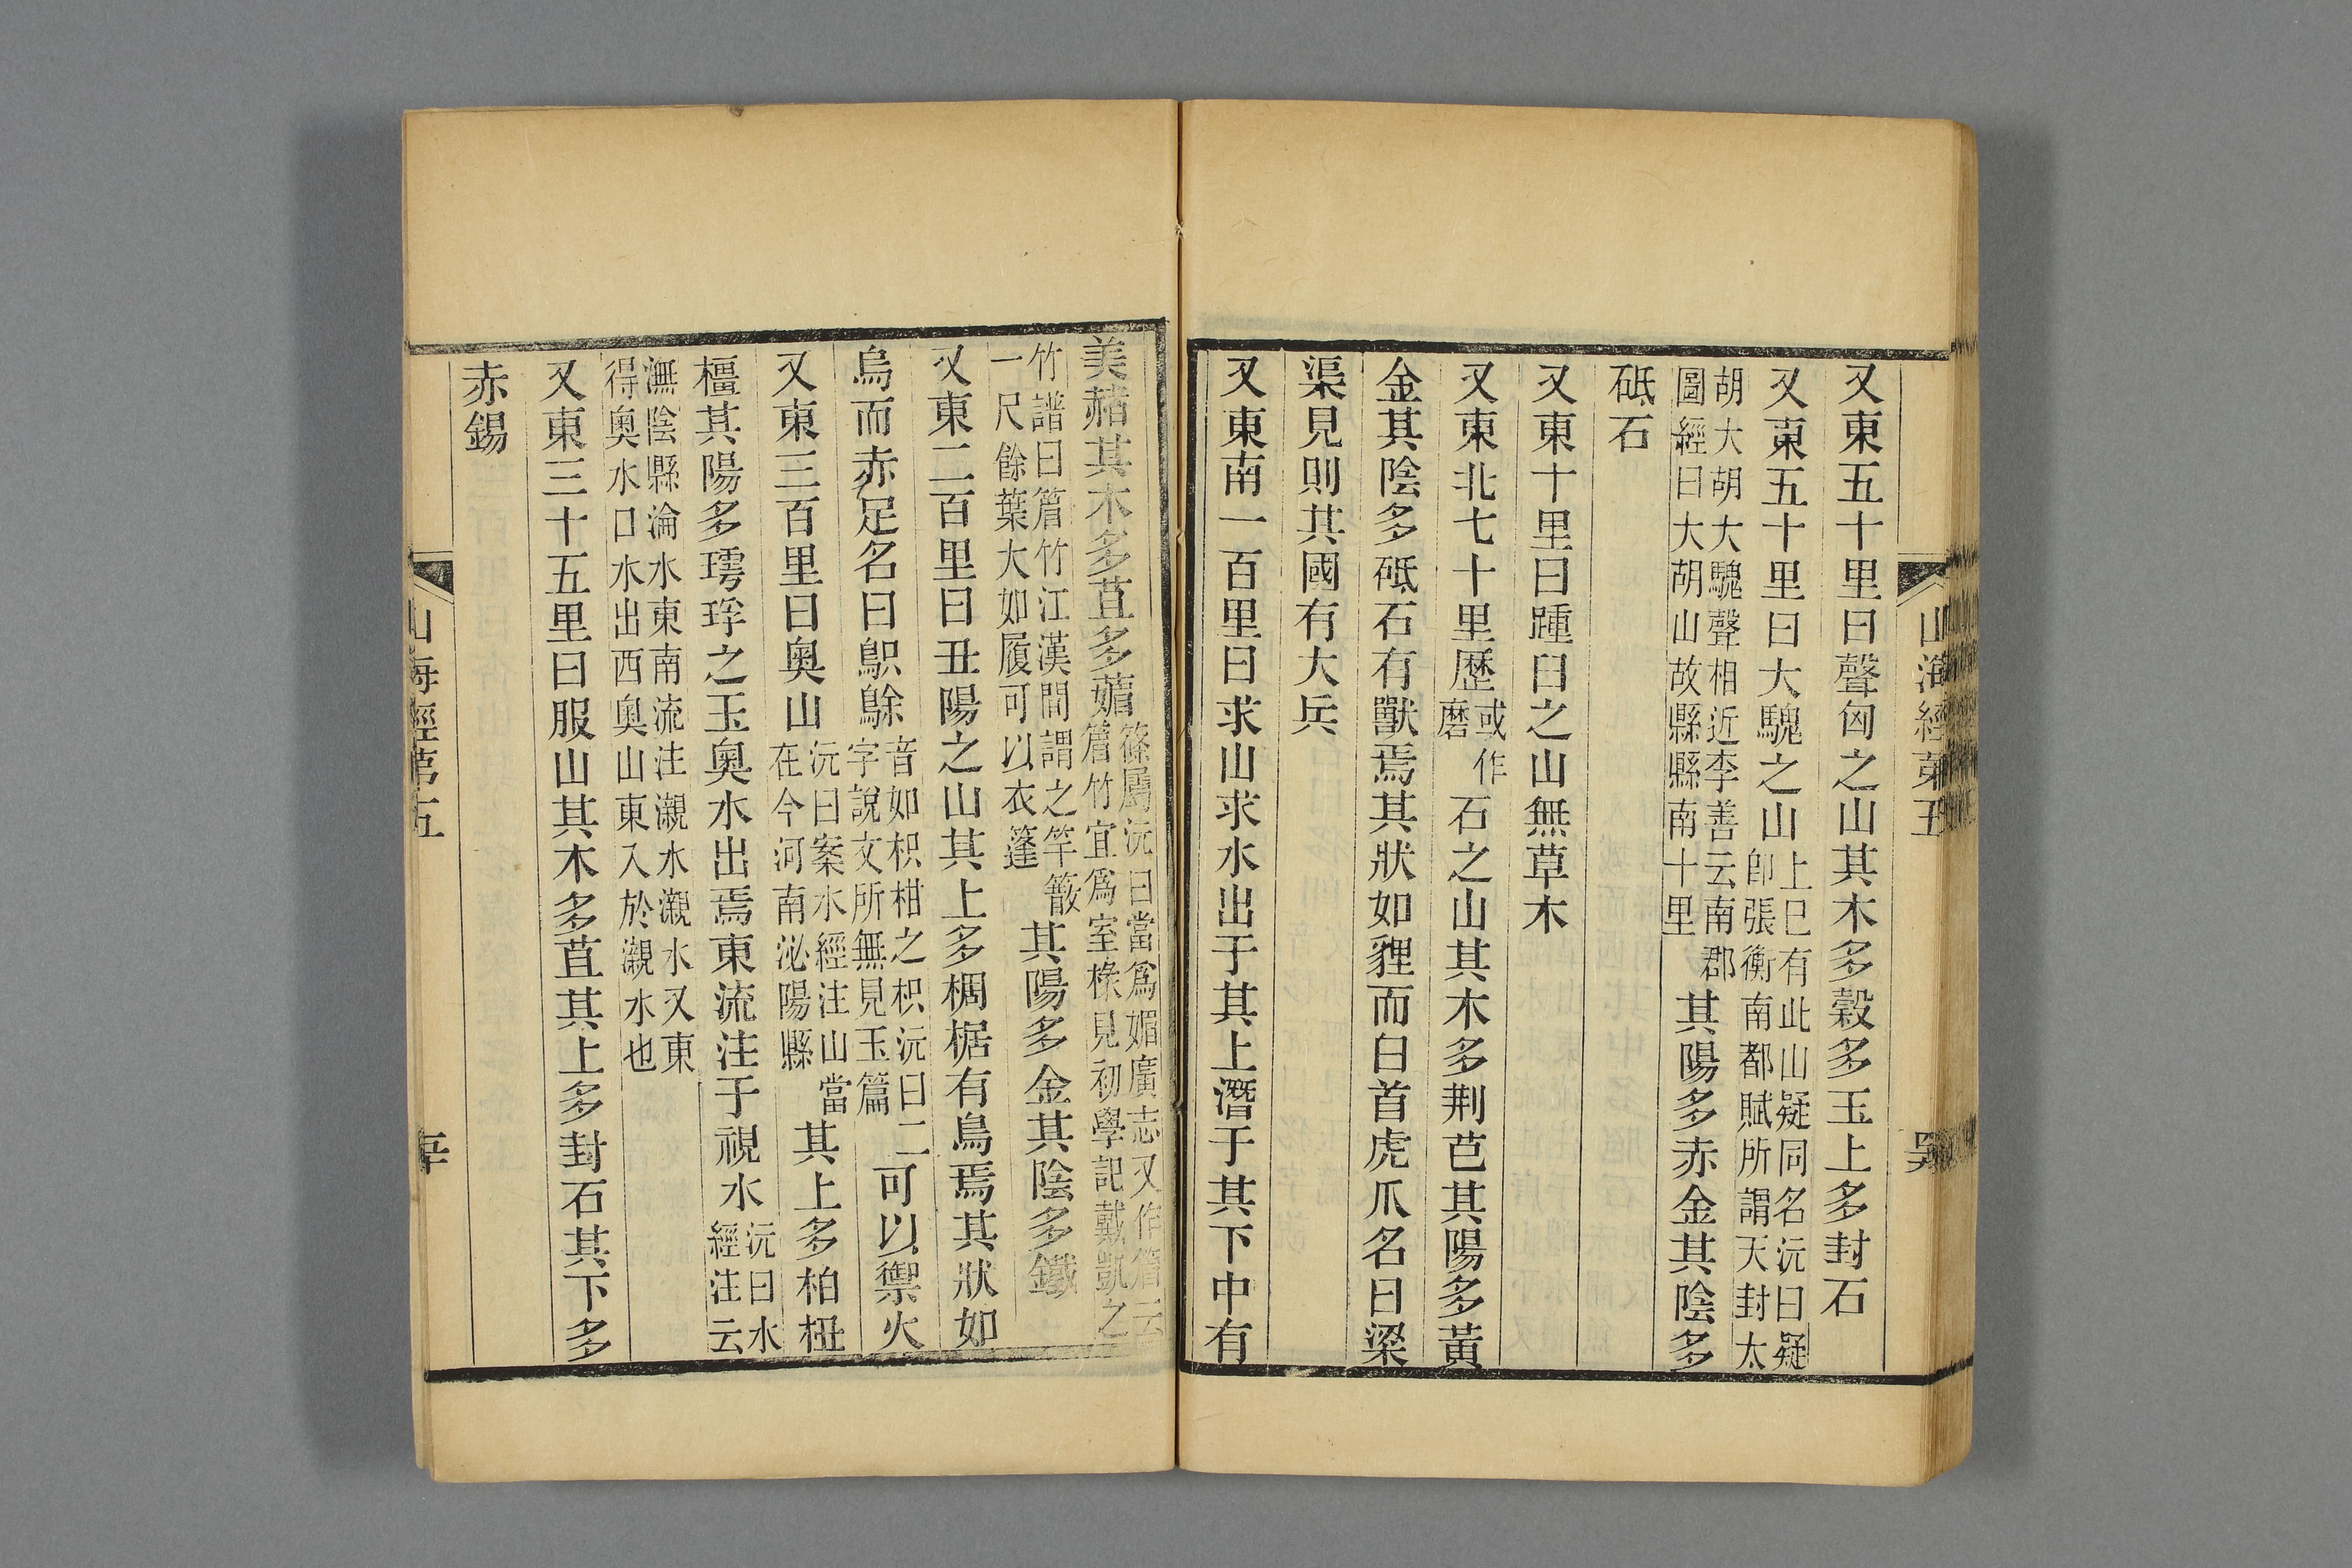 又東五十里曰聲匈之山其木多穀多玉上多封石
又東五十里曰大騩之山上巳有此山疑同名沅曰疑
卽張衡南都賦所謂天封太
胡大胡大騩聲相近李善云南郡
圖經曰大胡山故縣縣南十里其陽多赤金其陰多
砥石
又東十里曰踵臼之山無草木
又東北七十里歷或作
磨石之山其木多荆芑其陽多黃
金其陰多砥石有獸焉其狀如貍而白首虎爪名曰梁
渠見則其國有大兵
又東南一百里曰求山求水出于其上潛于其下中有
美赭其木多苴多䉋篠屬沅曰當爲媚廣志又作䉋云
䉋竹宜爲室椽見初學記戴凱之
竹譜曰䉋竹江漢間謂之竿簸
一尺餘葉大如履可以衣篷其陽多金其陰多鐵
又東二百里曰丑陽之山其上多椆椐有鳥焉其狀如
烏而赤足名曰䳅鵌音如枳柑之枳沅曰二
字說文所無見玉篇可以禦火
又東三百里曰奧山沅曰案水經注山當
在今河南泌陽縣其上多柏杻
橿其陽多㻬琈之玉奧水出焉東流注于視水沅曰水
經注云
潕陰縣淪水東南流注瀙水瀙水又東
得奧水口水出西奧山東入於瀙水也
又東三十五里曰服山其木多苴其上多封石其下多
赤錫
山海經第五
山海經第五